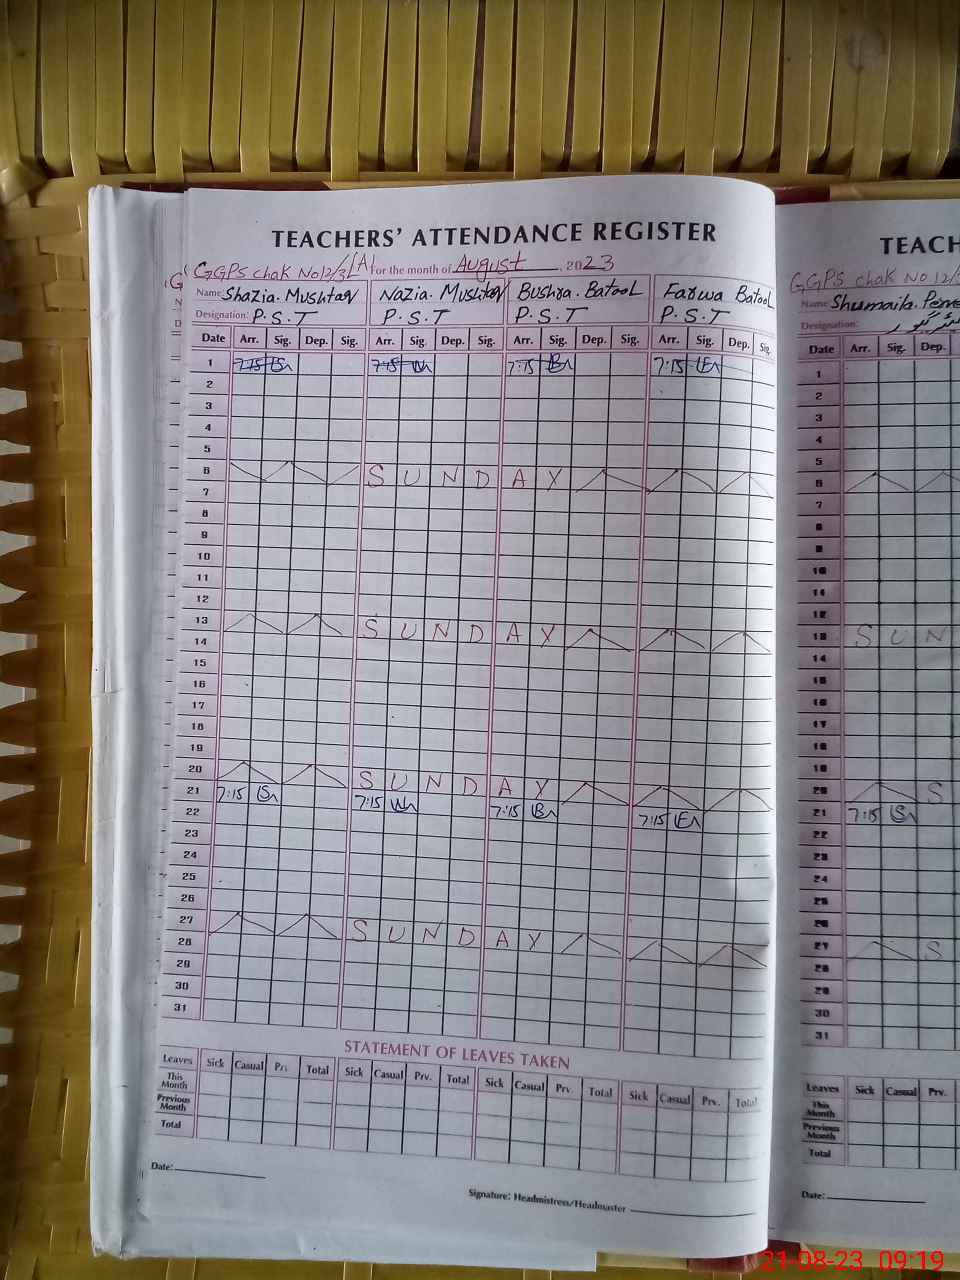 TEACHERS' ATTENDANCE REGISTER
GGPS chak No 12/3 For the month of August, 2023
Name Shazia. Mushtaq Nazia. Mushtaq Bushra. Batool Farwa Batool
Designation: P.S.T P.S.T P.S.T P.S.T
Date Arr. Sig. Dep. Sig. Arr. Sig. Dep. Sig. Arr. Sig. Dep. Sig. Arr. Sig. Dep. Sig.
1 7:15 7:15 7:15 7:15
2
3
4
5
6 SUNDAY
7
8
9
10
11
12
13 SUNDAY
14
15
16
17
18
19
20 SUNDAY
21 7:15 7:15 7:15 7:15
22
23
24
25
26
27 SUNDAY
28
29
30
31
STATEMENT OF LEAVES TAKEN
Leaves Sick Casual Prv. Total Sick Casual Prv. Total Sick Casual Prv. Total Sick Casual Prv. Total
This Month
Previous Month
Total
Date:
Signature: Headmistress/Headmaster
TEACH
GGPS chak No 12/3
Name Shumaila.
Designation:
Date Arr. Sig. Dep.
1
2
3
4
5
6
7
8
9
10
11
12
13 SUN
14
15
16
17
18
19
20 S
21 7:15
22
23
24
25
26
27 S
28
29
30
31
Leaves Sick Casual Prv.
This Month
Previous Month
Total
Date:
21-08-23 09:19